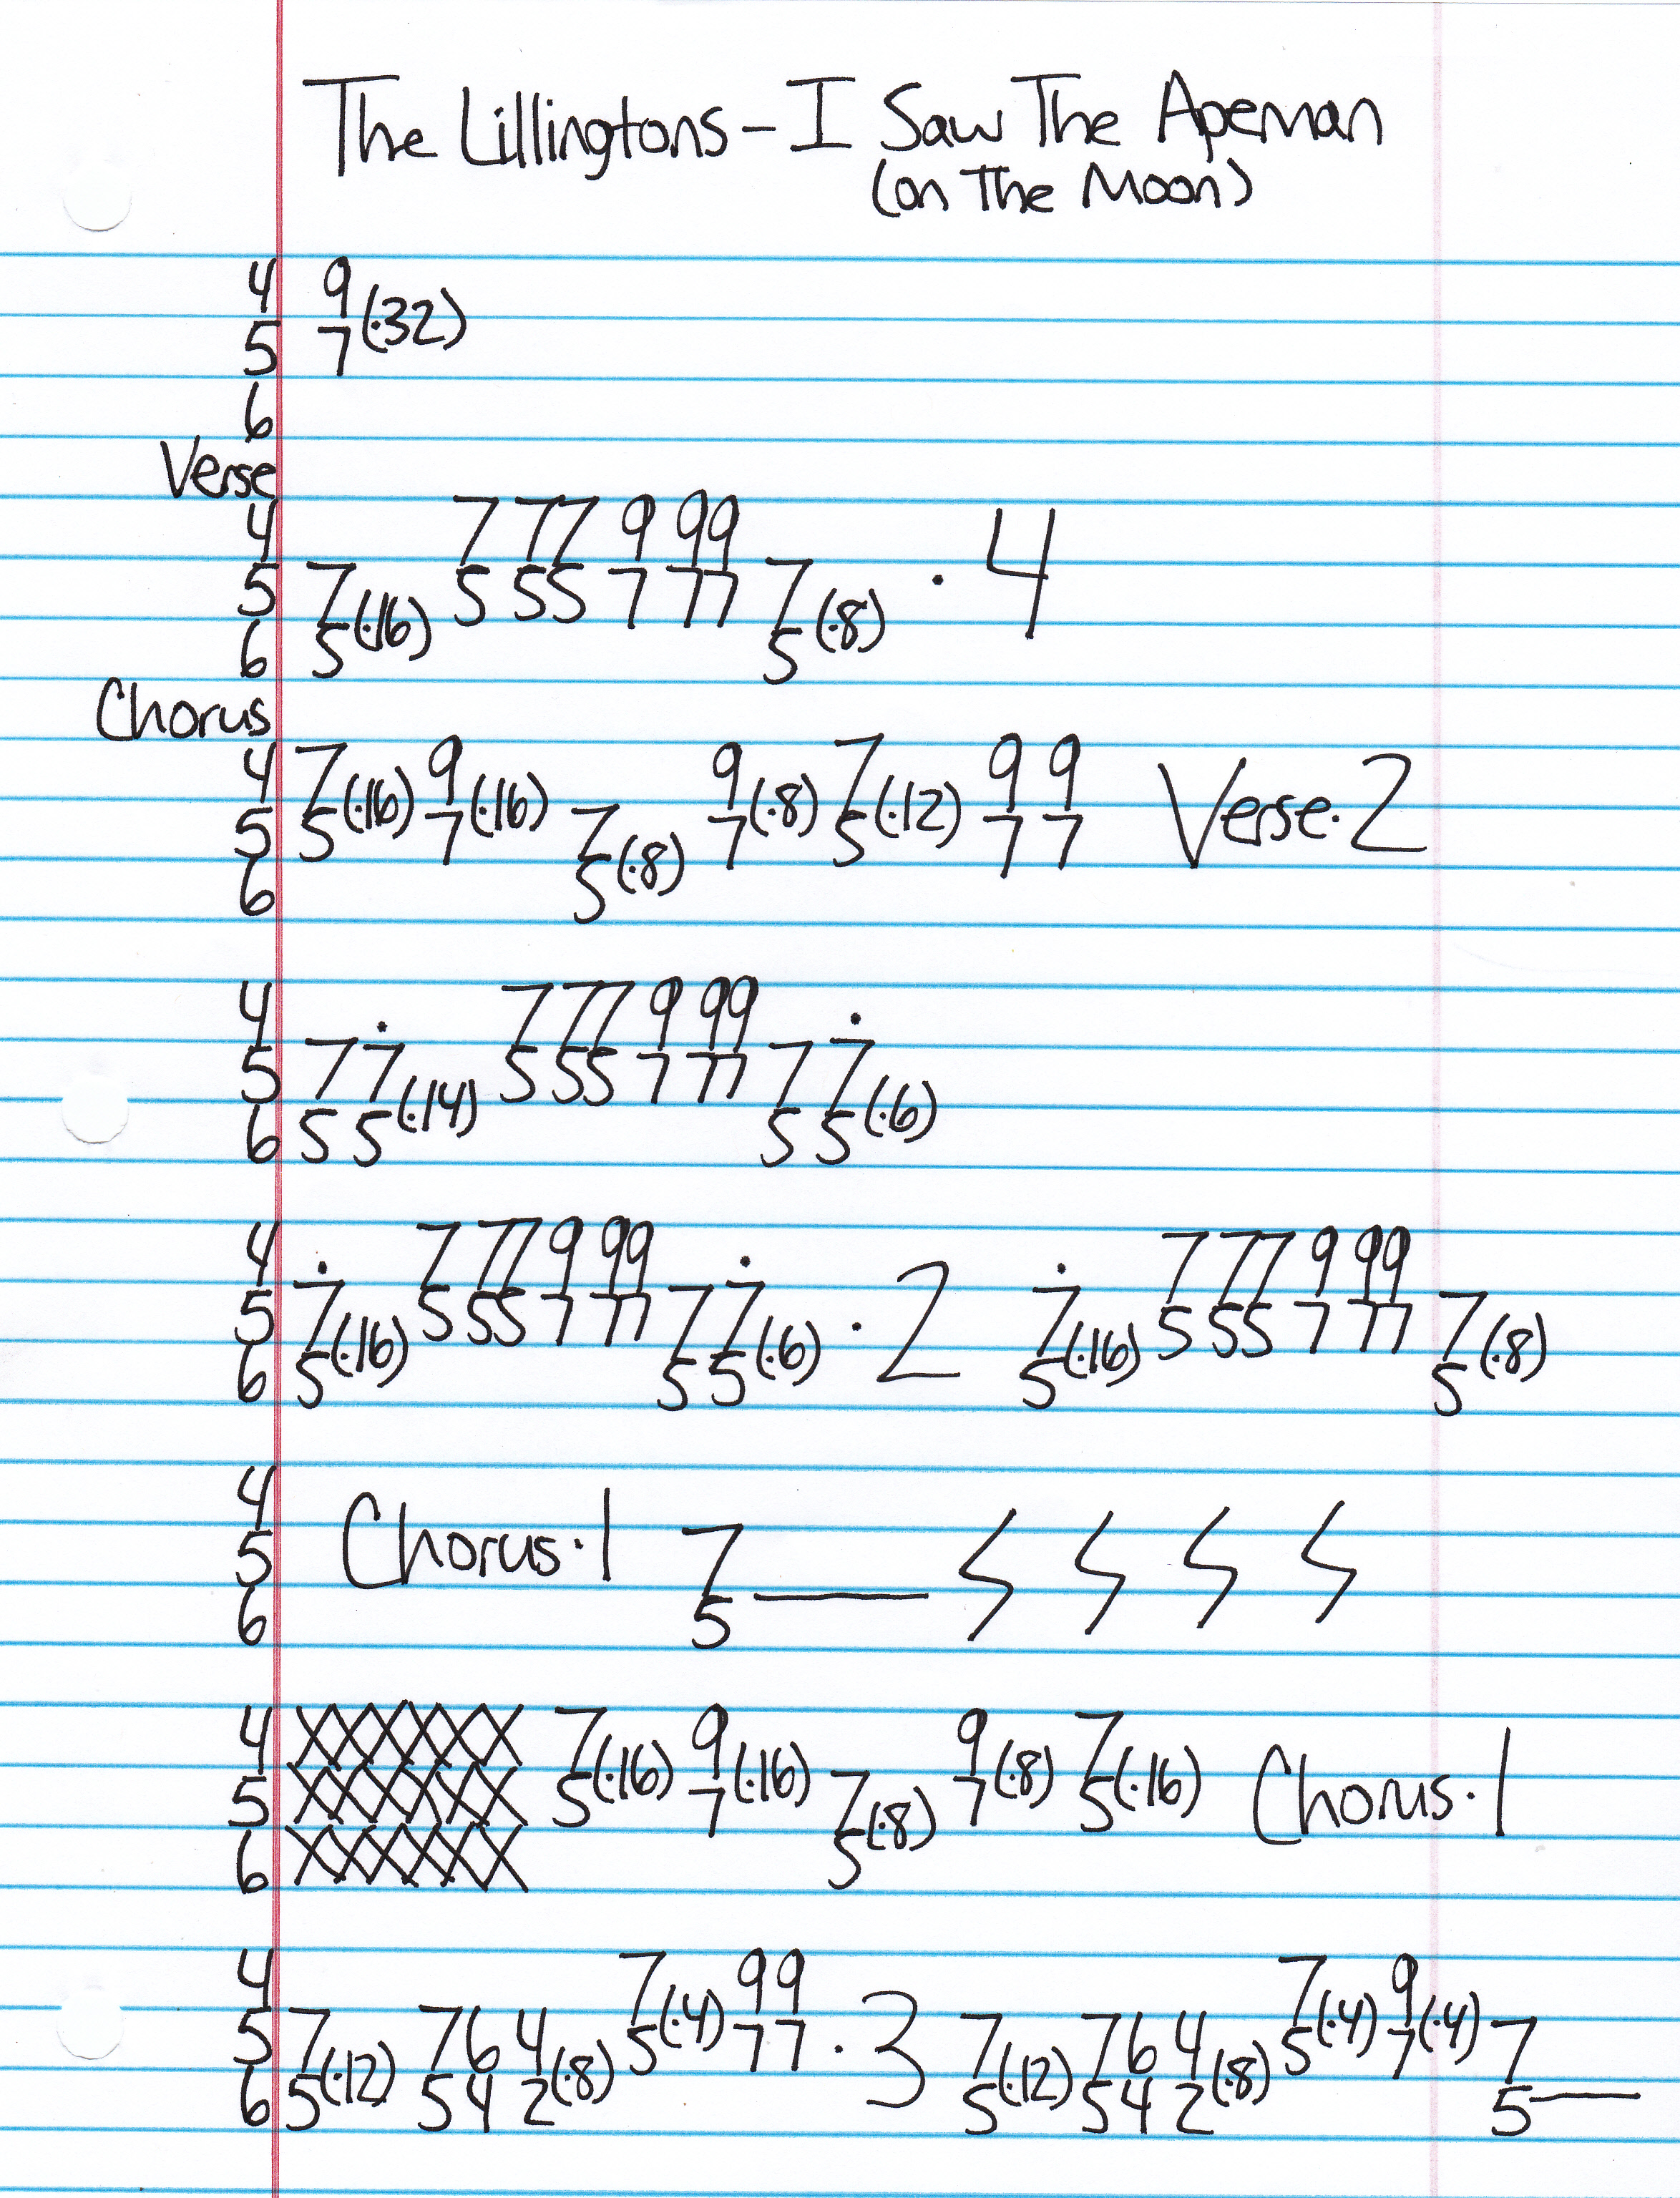 The Lillingtons – I Saw The Apeman
(on The Moon)
4 9 (·32)
5 7
6
Verse
4 7 77 9 99 · 4
5 7 (·16) 5 55 7 77 7 (·8)
6 5 5
Chorus
4 7 (·16) 9 (·16) 9 (·8) 7 (·12) 9 9 Verse·2
5 5 7 7 (·8) 7 5 7 7
6 5
4 7 77 9 99
5 7 7̇ (·14) 5 55 7 77 7 7̇ (·6)
6 5 5 5 5
4 7 77 9 99 · 2 7 77 9 99
5 7̇ (·16) 5 55 7 77 7 7̇ (·6) 7̇ (·16) 5 55 7 77 7 (·8)
6 5 5 5 5 5
4 Chorus·1
5 7
6 5
4 XXXXX 7 (·16) 9 (·16) 9 (·8) 7 (·16) Chorus·1
5 XXXXX 5 7 7 (·8) 7 5
6 XXXXX 5
4 7 (·4) 9 9 · 3 7 (·4) 9 (·4)
5 7 (·12) 7 6 4 (·8) 5 7 7 7 (·12) 7 6 4 (·8) 5 7 7
6 5 5 4 2 5 5 4 2 5